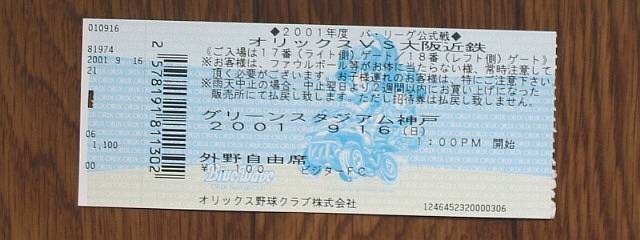 010916
81974
2001 9.16
21
06
1,100
06
2 578191 811302
◆2001年度 パ・リーグ公式戦◆
オリックスVS大阪近鉄
《ご入場は17番(ライト側)ゲート、18番(レフト側)ゲート》
※お客様は、ファウルボール等がお体に当たらない様、常時注意して
頂く必要がございます。お子様連れのお客様は、特にご注意下さい
※雨天中止の場合、中止翌日より2週間以内にお買い上げになった
販売所にて払戻し致します。ただし招待券は払戻し致しません。
グリーンスタジアム神戸
2001. 9.16(日)
1:00PM 開始
外野自由席
¥1,100 ビジターFC
BlueWave
オリックス野球クラブ株式会社
1246452320000306